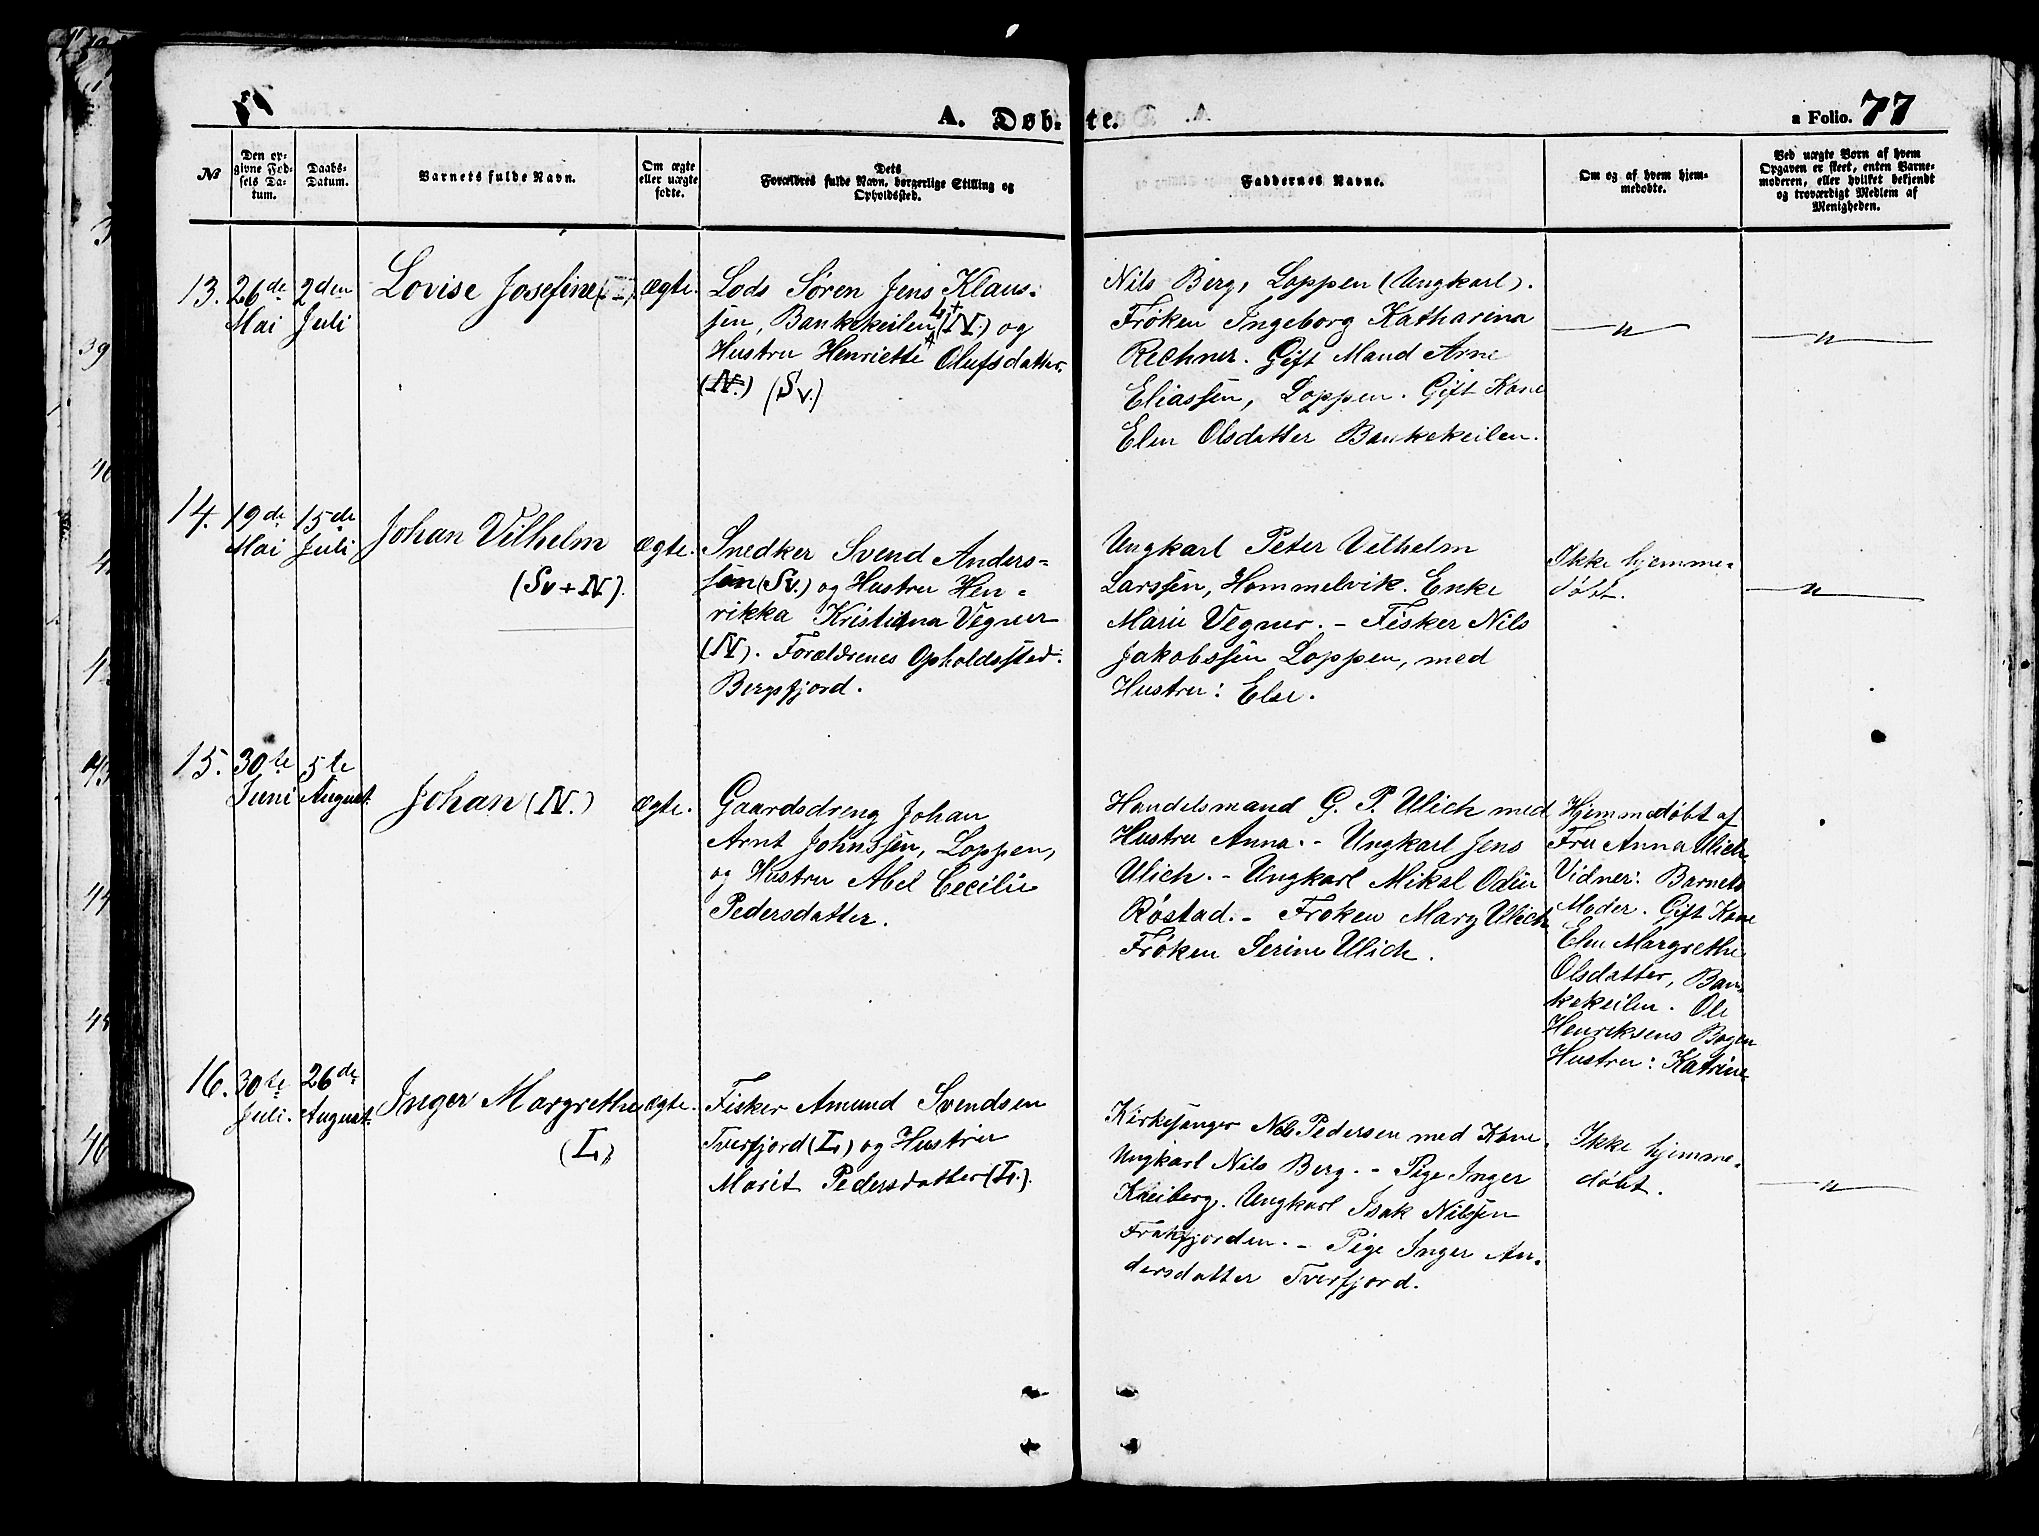 A. Døbte.
a Folio. 77
No
Den opgivne Fødsels Datum.
Daabs-Datum.
Barnets fulde Navn.
Om ægte eller uægte fødte.
Dets Forældres fulde Navn, borgerlige Stilling og Opholdssted.
Faddernes Navne.
Om og af hvem hjemmedøbte.
Ved uægte Børn af hvem Opgaven er skeet, enten Barnemoderen, eller hvilket bekjendt og troværdigt Medlem af Menigheden.
13.
26de
Mai
2den
Juli
Lovise Josefine
ægte.
Lods Søren Jens Klaus-
sen, Bankekeilen (N.) og
Hustru Henriette Olufsdatter
(N.) (Sv.)
Nils Berg, Loppen (Ungkarl).
Frøken Ingeborg Katharina
Rechner. Gift Mand Arne
Eliassen, Loppen. Gift Kone
Elen Olsdatter Bankekeilen.
— " —
— " —
14.
19de
Mai
15de
Juli
Johan Vilhelm
(Sv + N).
ægte.
Snedker Svend Anders-
son (Sv.) og Hustru Hen-
rikka Kristiana Vegner
(N). Forældrenes Opholdssted:
Bergsfjord.
Ungkarl Peter Vilhelm
Larssen, Hommelvik. Enke
Marie Vegner. - Fisker Nils
Jakobssen Loppen, med
Hustru: Else.
Ikke hjemme-
døbt.
— " —
15.
30te
Juni
5te
August.
Johan (N.)
ægte.
Gaardsdreng Johan
Arnt Johnssen, Loppen,
og Hustru Abel Cecilie
Pedersdatter.
Handelsmand G. P. Ulich med
Hustru Anna. - Ungkarl Jens
Ulich. - Ungkarl Mikal Odin
Røstad. - Frøken Mary Ulich
Frøken Serine Ulich.
Hjemmedøbt af
Fru Anna Ulich.
Vidner: Barnets
Moder. Gift Kone
Elen Margrethe
Olsdatter, Ban-
kekeilen. Ole
Henriksens Bogen
Hustru: Katrine
16.
30te
Juli.
26de
August.
Inger Margrethe
(L)
ægte.
Fisker Amund Svendsen
Tverfjord (L.) og Hustru
Marit Pedersdatter (L.).
Kirkesanger Nils Pedersen med Kone.
Ungkarl Nils Berg. - Pige Inger
Kreiberg. Ungkarl Isak Nilssen
Frakfjorden. - Pige Inger An-
dersdatter Tverfjord.
Ikke hjemme-
døbt.
— " —